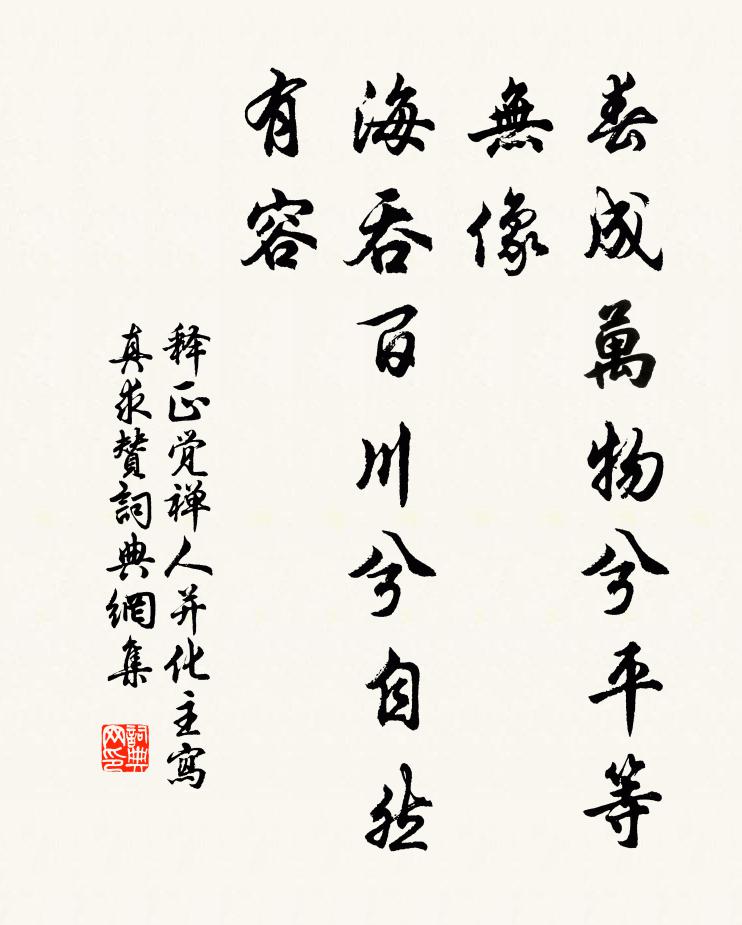 春成萬物兮平等
無像
海吞百川兮自然
有容
释正觉禅人并化主寫
真求贊詞典網集
詞典
网印